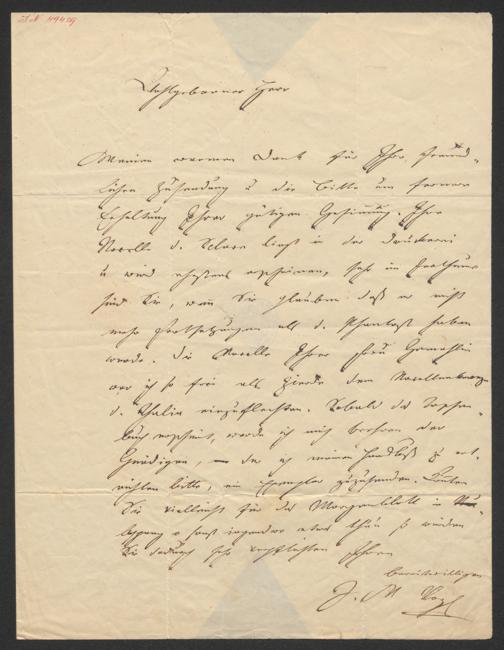 I.N. 49409
Wohlgeborner Herr
Meinen warmen Dank für Ihre freund-
lichen Zusendung u die Bitte um fernere
Erhaltung Ihrer gütigen Gesinnung. Ihre
Novelle d. Sclave liegt in der Druckerei
u wird ehestens erscheinen, sehr im Irrthum
sind Sie, wenn Sie glauben daß er nicht
mehr Fortsetzungen als d. Phantast haben
werde. Die Novelle Ihrer Frau Gemahlin
war ich so frei als Zierde dem Novellenkranze
d. Thalia einzuflechten. Sobald das Taschen-
buch erscheint, werde ich mich der
Gnädigen, – der ich meinen Handkuß zu ent-
richten bitte, ein Exemplar zuzusenden. Könten
Sie vielleicht für das Morgenblatt in
o sonst irgendwo etwas thun so würden
Sie dadurch sehr verpflichten Ihren
bereitwilligen
J. N. Vogl